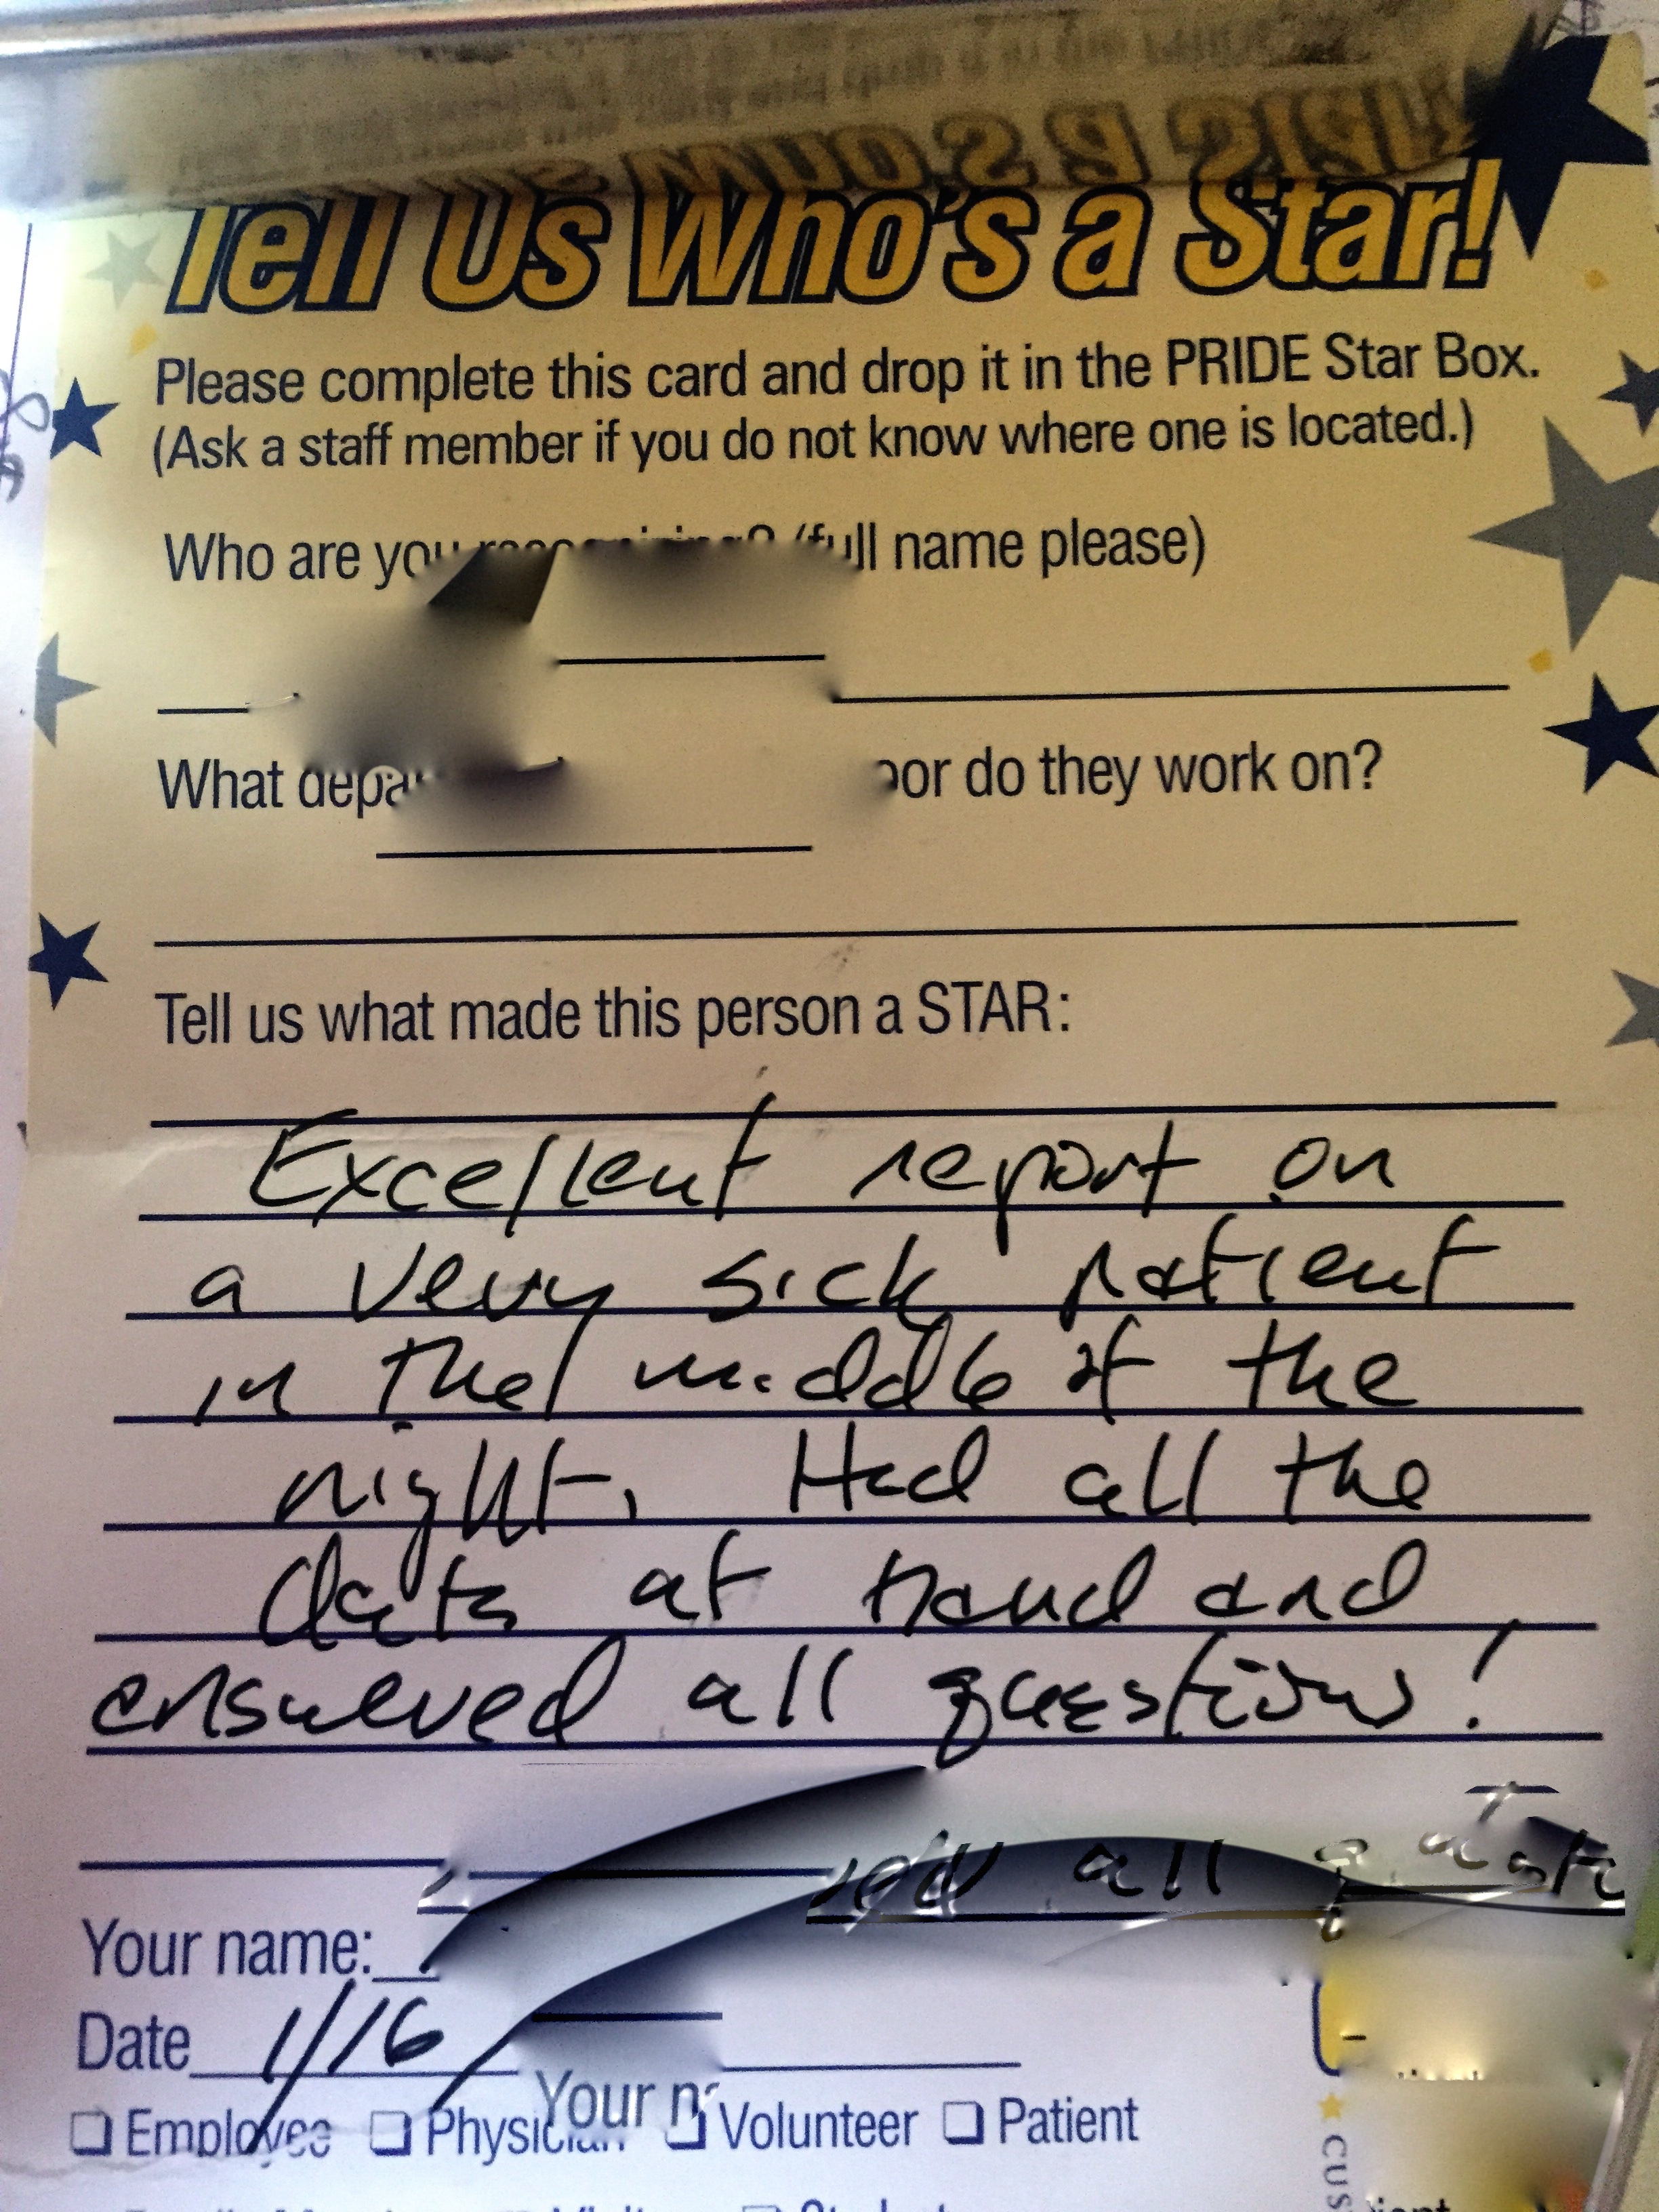 Tell Us Who's a Star!
Please complete this card and drop it in the PRIDE Star Box.
(Ask a staff member if you do not know where one is located.)
Who are you full name please)
What do they work on?
Tell us what made this person a STAR:
Excellent report on
a very sick patient
in the middle of the
night. Had all the
data at hand and
answered all questions!
all
Your name:
Date 1/16
Your
Employee Physician Volunteer Patient
CUS